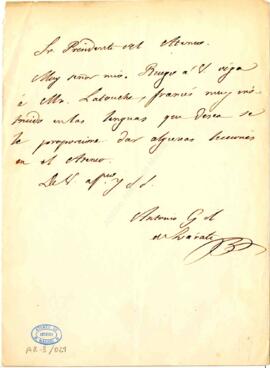 Sr Presidente del Ateneo.
Muy señor mio. Ruego á V. oiga
á Mr. Latouche, francés muy ins
truido en las lenguas que desea se
le proporcione dar algunas lecciones
en el Ateneo.
De V. afmo. y S. S.
Antonio G. 
de Zárate
AR-3/021